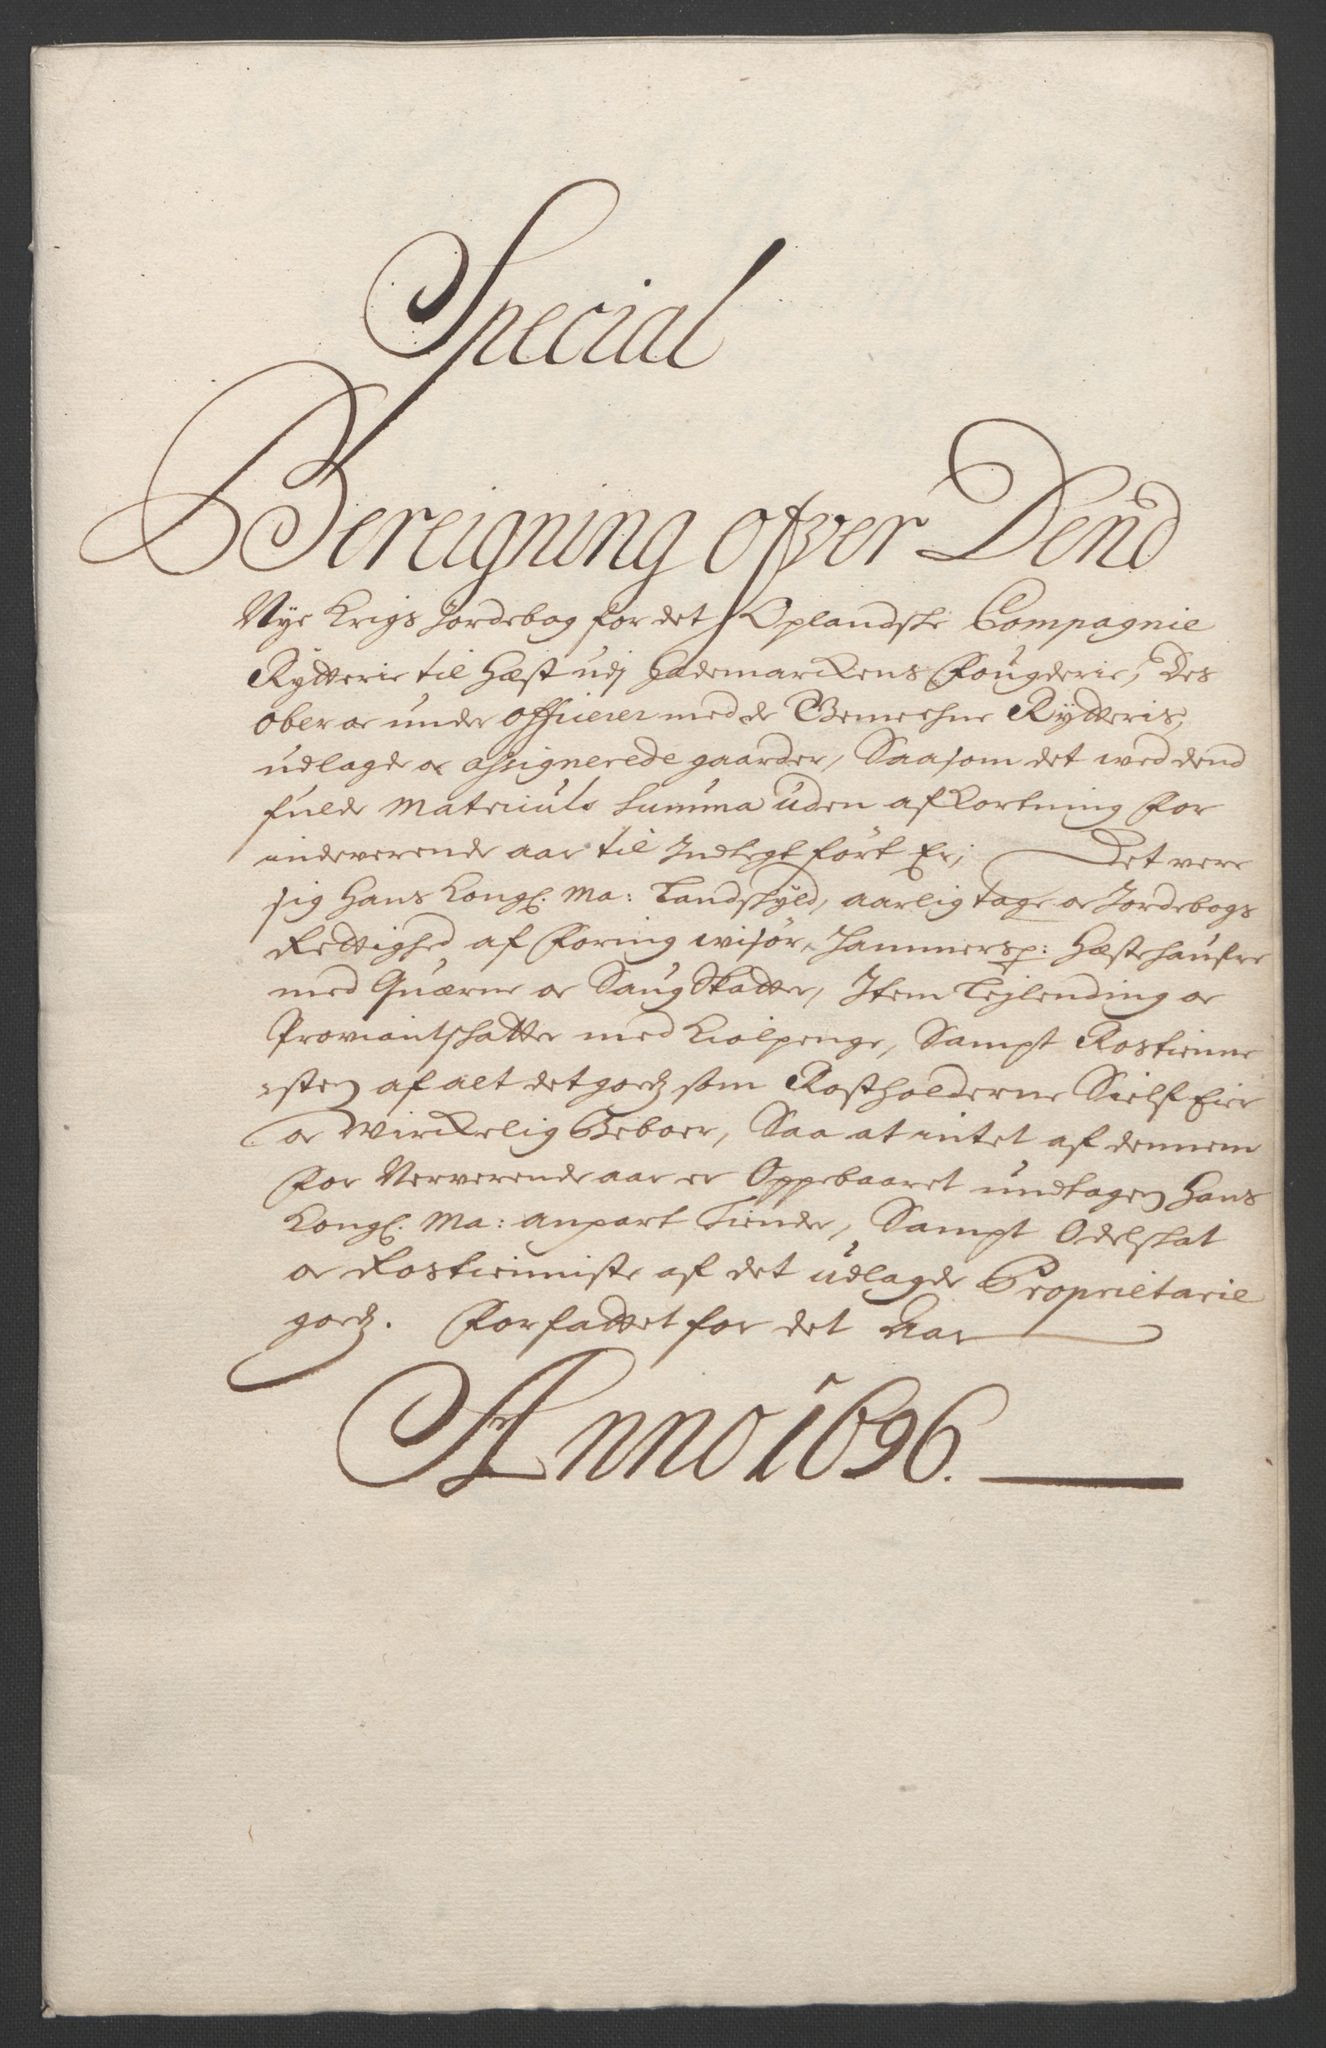 Special
Bereigning ofver Dend
Nye Krigs Jordebog for det Oplandske Compagnie
Rytterie til Hæst udj Hedemarckens Fougderie, Des
ober oc under officerer med de Gemeehne Rytteris,
udlagde oc assignerede gaarder, Saasom det wed dend
fulde Matriculs Summa uden afkortning for
indeverende aar til Indtegt fört Er; Det vere
sig Hans Kongl. Ma: Landskyld, aarlig tage oc Jordebogs
Rettighed af Foring wisör, Hammersp:
med Quærne oc Saug Skatter, Item Leylending oc
Proviantskatter med Kiolpenge, Sampt Rostienne
sten af alt det godz som Rostholderne Sielf Eier
oc Wirckelig Beboer, Saa at intet af dennem
for Nerverende aar er Oppebaaret undtagen Hans
Kongl. Ma: anpart Tiender, Sampt Odelskat
oc Rostienniste af det udlagde Proprietarie
godz. Forfattet for det Aar
Anno 1696.